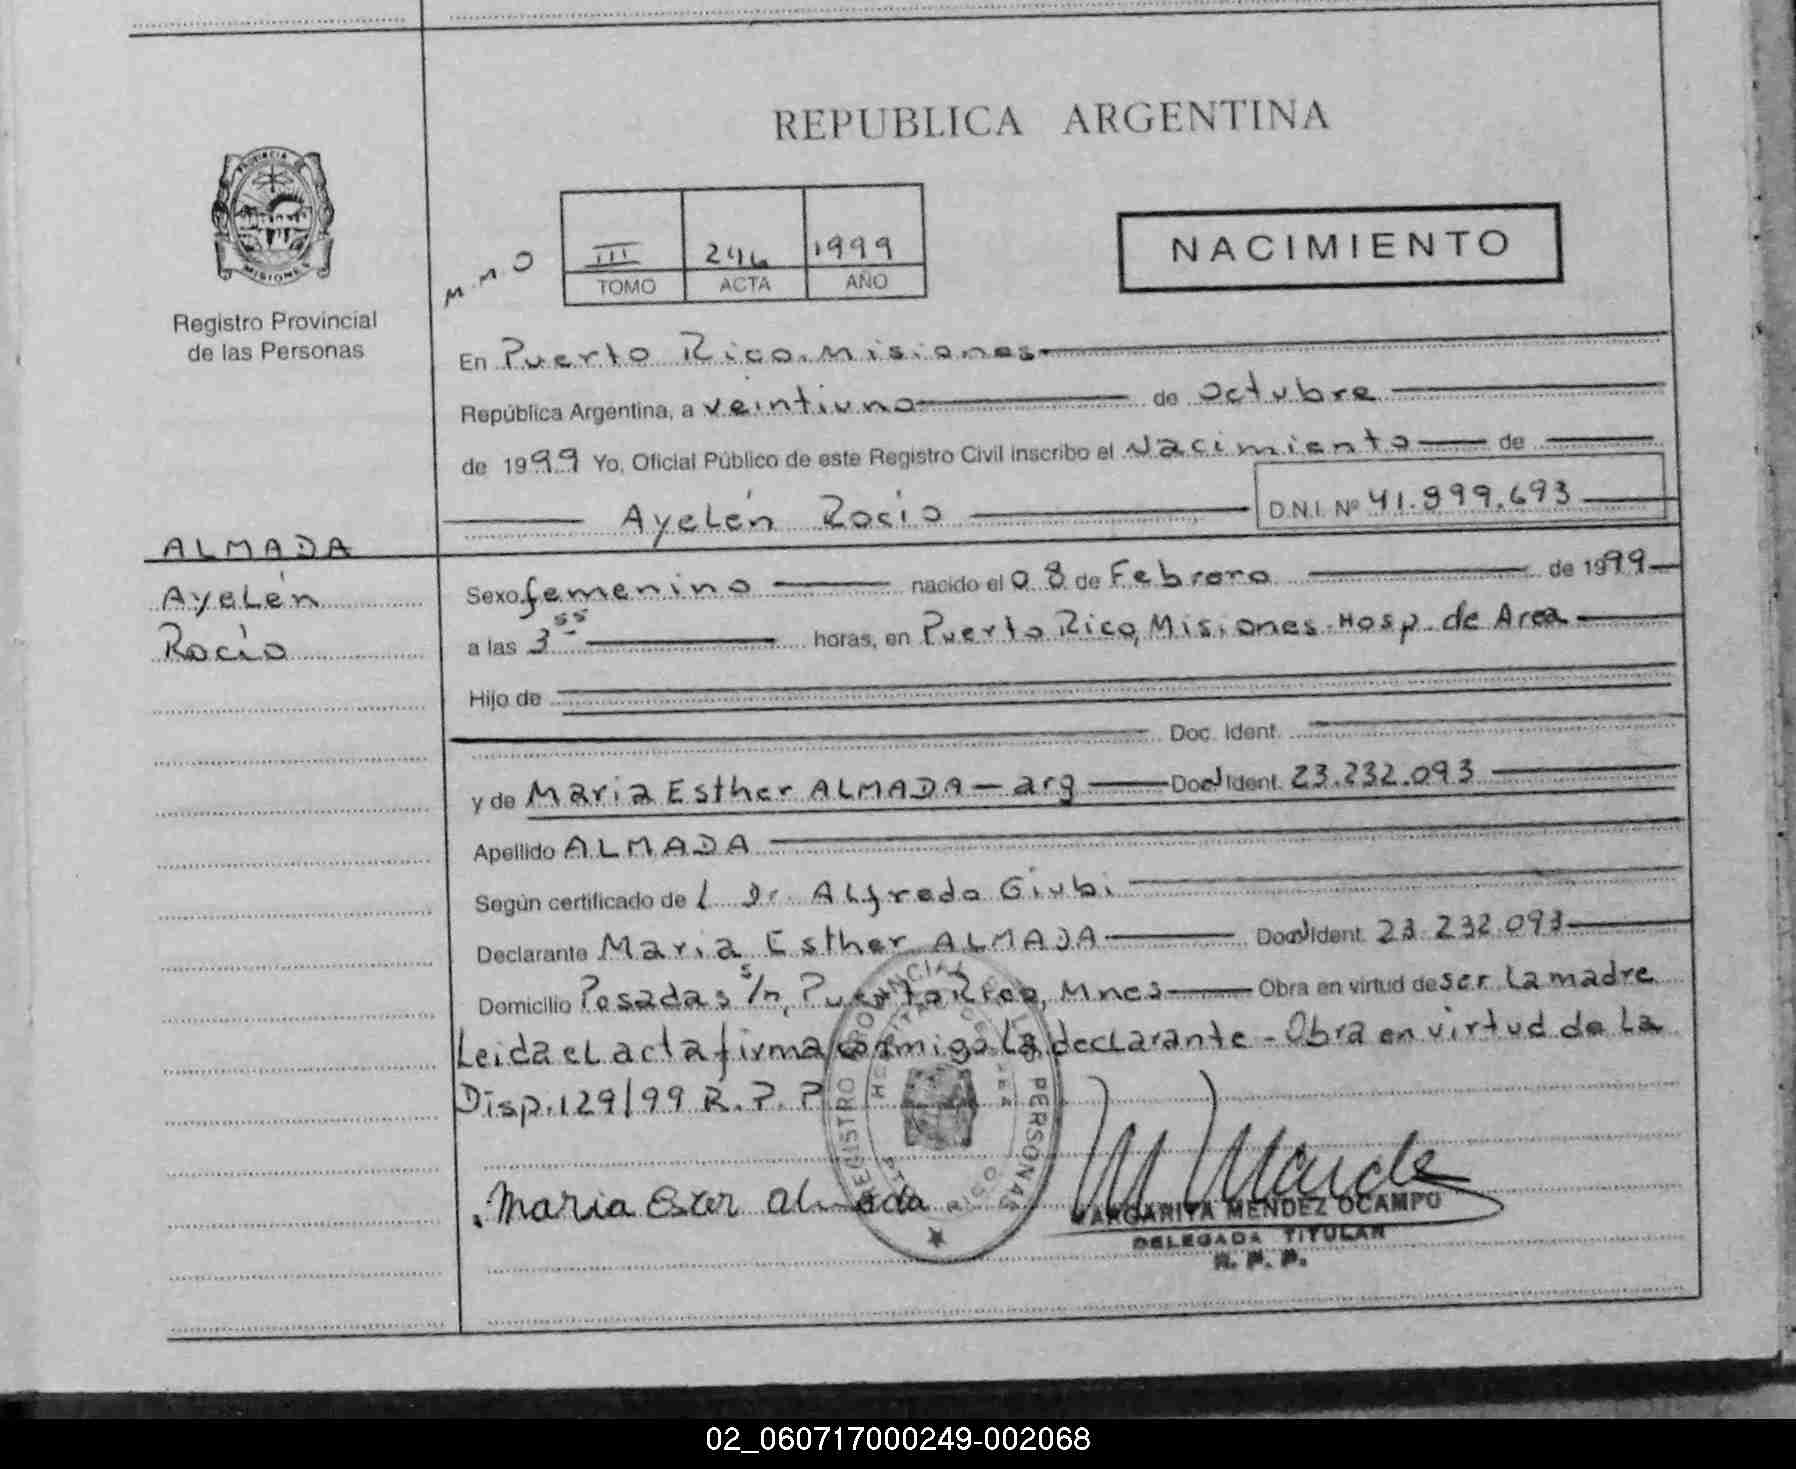 REPUBLICA ARGENTINA
PROVINCIA DE
MISIONES
Registro Provincial
de las Personas
M.M.O
III 246 1999
TOMO ACTA AÑO
NACIMIENTO
En Puerto Rico. Misiones
República Argentina, a veintiuno de Octubre
de 1999 Yo, Oficial Público de este Registro Civil inscribo el Nacimiento de
Ayelén Rocio D.N.I. Nº 41.899.693
ALMADA
Ayelén
Rocio
Sexo femenino nacido el 08 de Febrero de 1999
a las 3 55 horas, en Puerto Rico, Misiones. Hosp. de Area
Hijo de
Doc. Ident.
y de Maria Esther ALMADA - arg Doc. Ident. 23.232.093
Apellido ALMADA
Según certificado de l Dr. Alfredo Giubi
Declarante Maria Esther ALMADA Doc. Ident. 23.232.093
Domicilio Posadas s/n, Puerto Rico, Mnes Obra en virtud de ser la madre
Leida el acta firma conmigo la declarante - Obra en virtud de la
Disp. 129/99 R.P.P
REGISTRO PROVINCIAL DE LAS PERSONAS
Maria Ester Almada
MARGARITA MENDEZ OCAMPO
DELEGADA TITULAR
R. P. P.
02_060717000249-002068